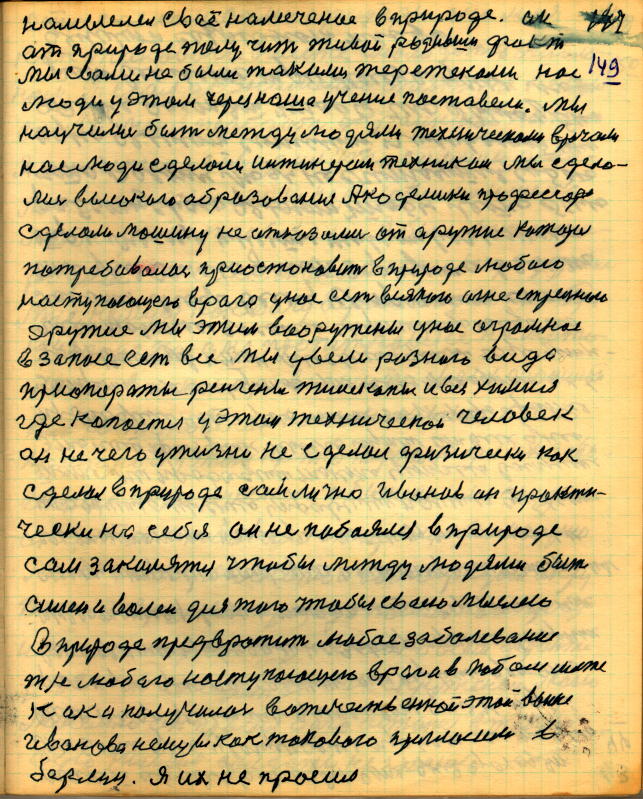 намысел своё намеченое в природе. он
от природе получит живой родивши факт 149
мы с вами не были такими тережеками нас
люди у этом через наша учение поставели. мы
научили быт между людями техническоми врачами
нас люди сделали интинерам техникам мы сдело-
ли высокого образования Академики професора
сделоли мошину не отказоли от аружие которая
потребавалас приостоновит в природе любого
наступающего врага у нас ест всякого огне стрелного
аружие мы этим вооружены у нас огромное
в запосе ест все мы увели розного вида
приопораты ренгены тилископы и вся химия
где копоется у этом технической человек
он не чего у жизни не сделал физически как
сделал в природе сам лично Иванов он практи-
чески на себя он не побоялся в природе
сам закалятся чтобы между людями быт
силен и волен для того чтобы свою мыслею
в природе предвротит любое заболевание
так любого наступающего врага в любом месте
как и получилос в отечественной этой воине
Иванова немцы как такового пригласили в
берлин. я их не просил